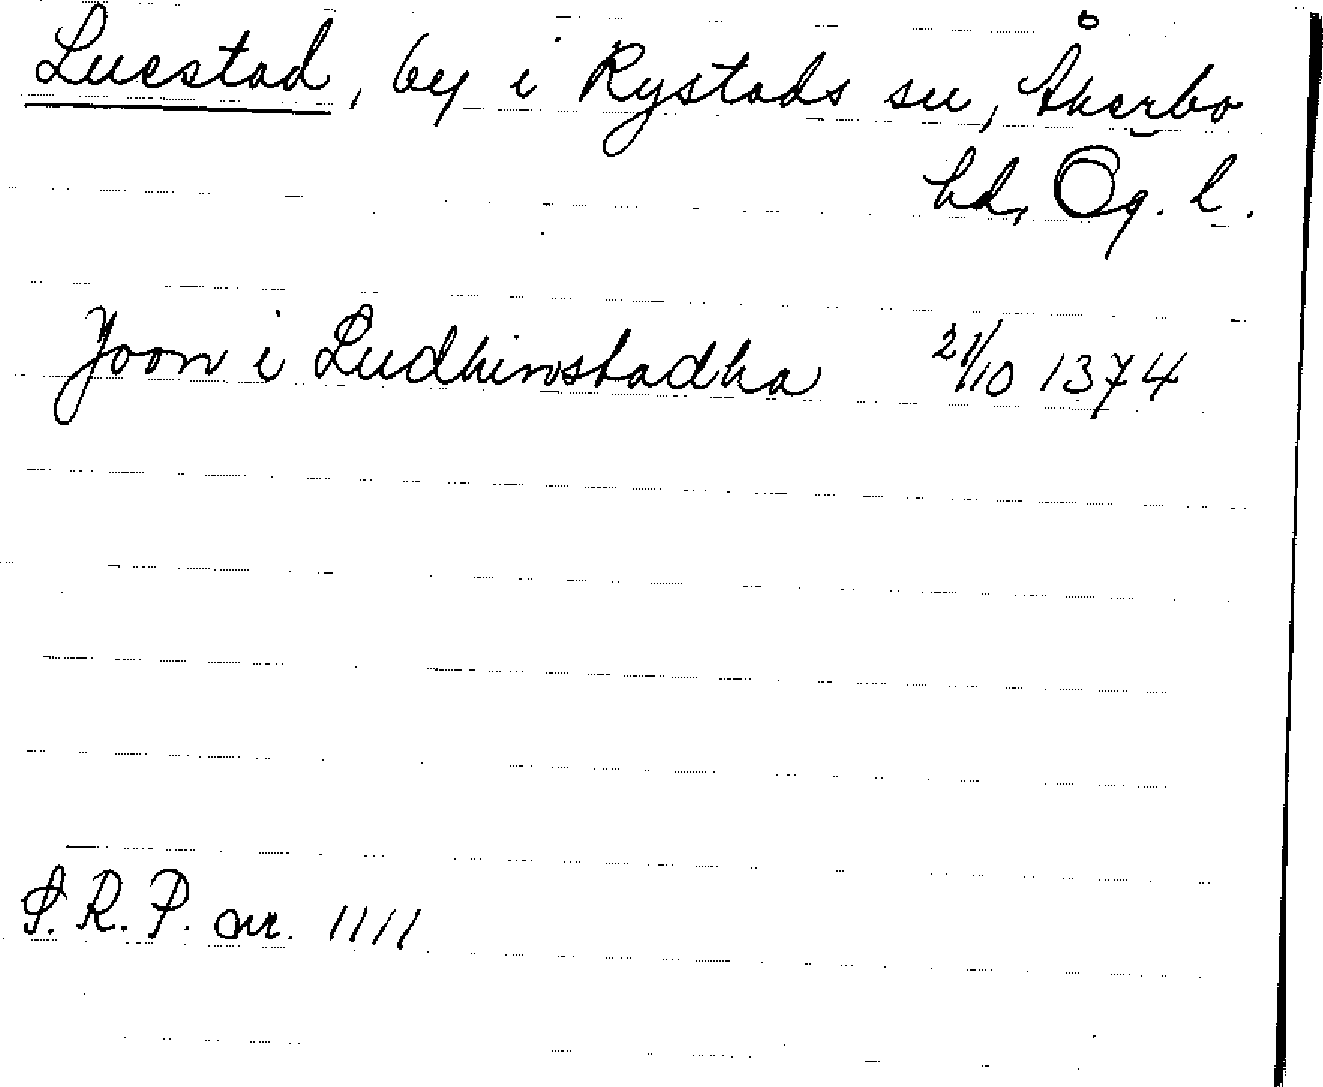 Luestad, by i Rystads sn, Åkerbo
hd, Ög. l.
Joon i Ludhinstadha 21/10 1374
S. R. P. nr. 1111